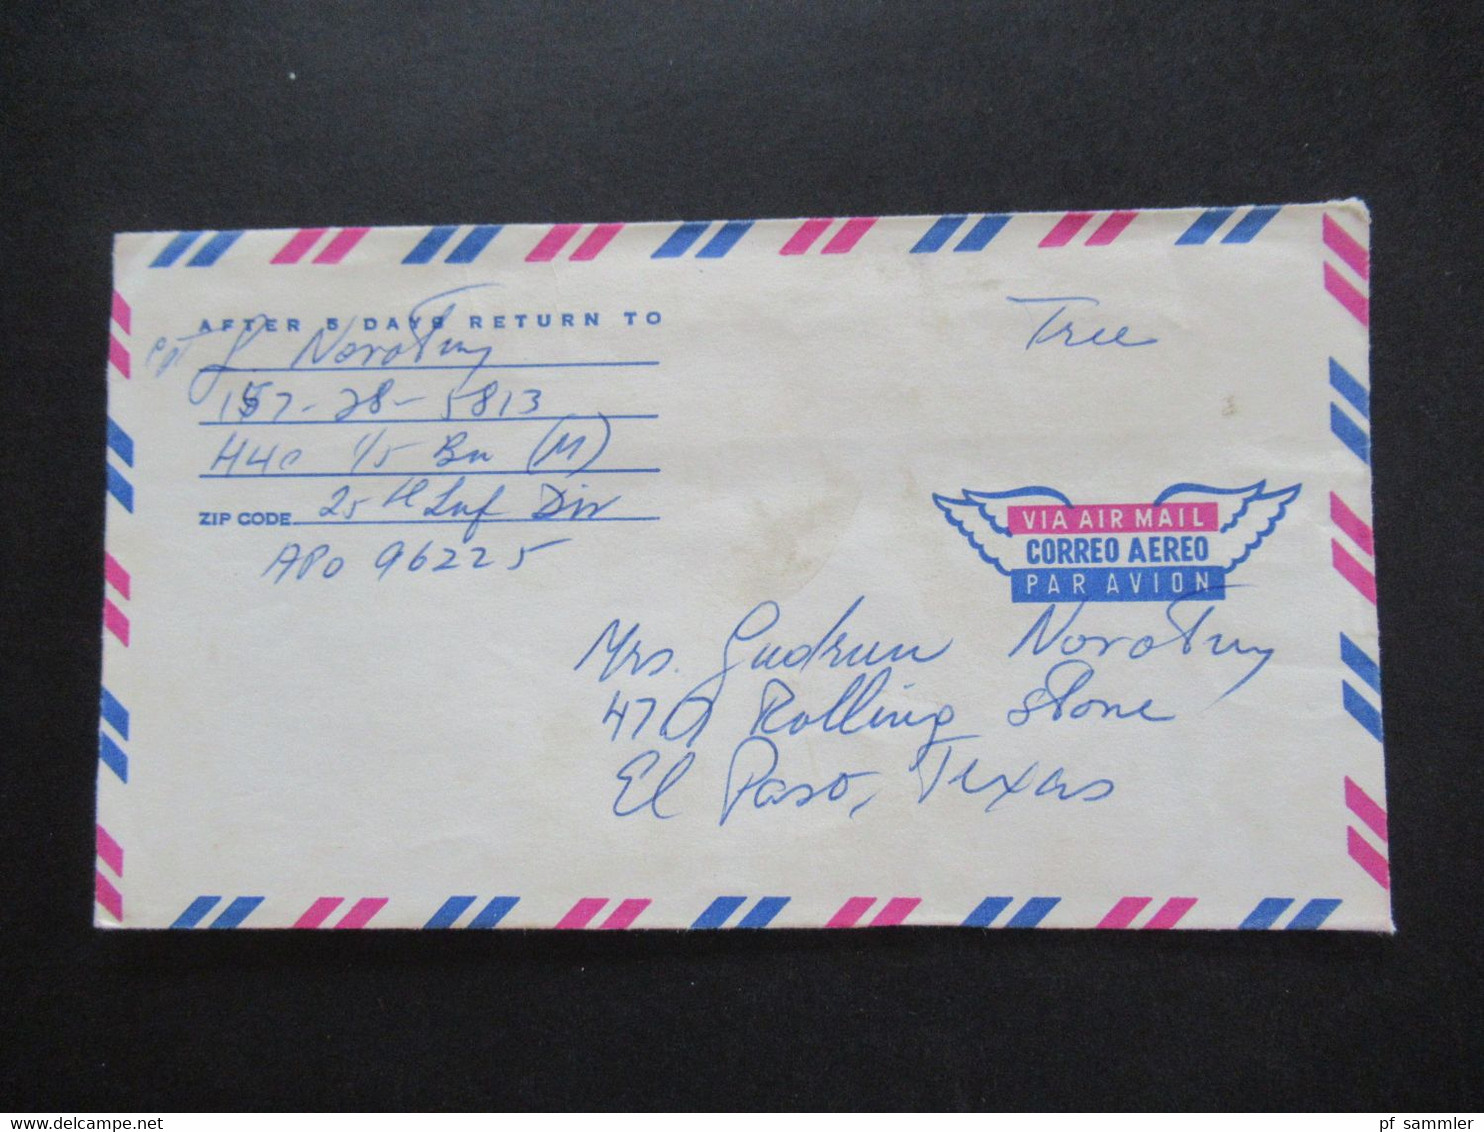 AFTER 5 DAYS RETURN TO
J. Novotny
157-28-5813
H4C 1/5 Bn (M)
ZIP CODE 25th Inf Div
APO 96225
Free
VIA AIR MAIL
CORREO AEREO
PAR AVION
Mrs. Gudrun Novotny
4709 Rolling Stone
El Paso, Texas
delcampe.net
pf_sammler